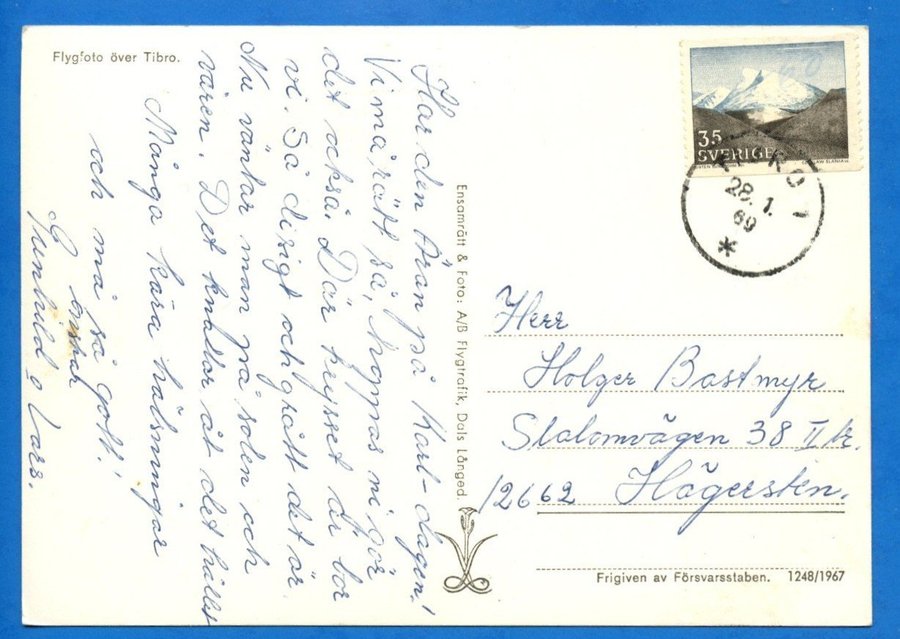 Flygfoto över Tibro.
Har den äran på Karl-dagen!
Vi må rätt så, hoppas ni gör
det också. Där krysset är bor
vi. Så disigt och grått det är.
Nu väntar man på solen och
våren. Det knallar åt det hållet
Många kära hälsningar
och må så gott!
önskar
Gunhild o Lars.
Ensamrätt & Foto: A/B Flygtrafik, Dals Långed.
35
SVERIGE
28. 1.
69
Herr
Holger Bastmyr
Slalomvägen 38 II tr.
12662 Hägersten.
Frigiven av Försvarsstaben. 1248/1967